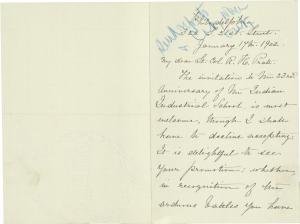 January 17th 1902.
My dear Lt. Col. R. H. Pratt.
The invitation to the 22nd
Anniversary of the Indian
Industrial School is most
welcome, though I shall
have to decline accepting.
It is delightful to see
your promotion; whether
in recognition of the
arduous battles you have